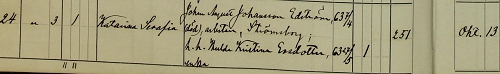 24 " 3 1 Katarina Serafia John August Johansson Edström, 63 7/4 251 Okt. 13
död, arbetare, Strömsborg;
h. h. Hulda Kristina Ersdotter, 63 27/5 1
enka
" "